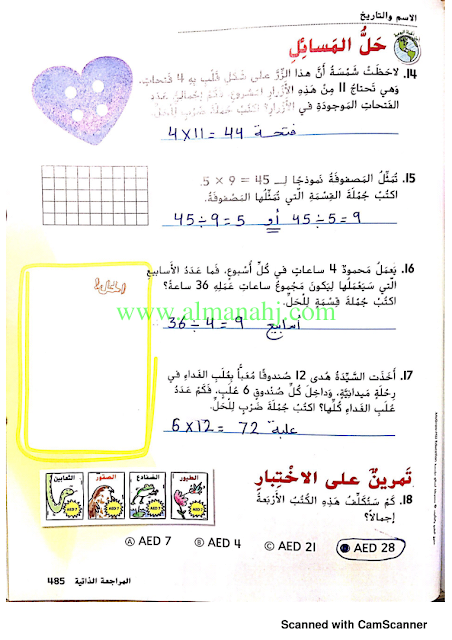 الاسم والتاريخ
حَلُّ المَسائِلِ
14. لاحَظَتْ شَمْسَةُ أنَّ هذا الزِّرَّ على شَكْلِ قَلْبٍ بِهِ 4 فَتَحاتٍ.
وَهِيَ تَحتاجُ 11 مِنْ هَذِهِ الأَزْرارِ لِمَشْروعٍ. فَكَمْ إجمالِيُّ عَدَدِ
الفَتَحاتِ المَوجودَةِ في الأَزْرارِ؟ اكتُبْ جُملَةَ ضَرْبٍ لِلْحَلِّ.
4×11 = 44 فتحة
15. تُمَثِّلُ المَصفوفَةُ نَموذجًا لِـ 45 = 9 × 5.
اكتُبْ جُمْلَةَ القِسْمَةِ الَّتي تُمَثِّلُها المَصْفوفَةُ.
45÷9=5 أو 45÷5=9
16. يَعمَلُ مَحمودٌ 4 ساعاتٍ في كُلِّ أُسْبوعٍ. فَما عَدَدُ الأسابيعِ
الَّتي سَيَعْمَلُها لِيَكونَ مَجْموعُ ساعاتِ عَمَلِهِ 36 ساعةً؟
اكتُبْ جُملَةَ قِسْمَةٍ لِلْحَلِّ.
www.almanahj.com
36÷4 = 9 أسابيع
17. أَخَذَت السَّيِّدَةُ هُدى 12 صُندوقًا مُعَبَّأً بِعُلَبِ الغَداءِ في
رِحْلَةٍ مَيدانِيَّةٍ. وَداخِلَ كُلِّ صُندوقٍ 6 عُلَبٍ. فَكَمْ عَدَدُ
عُلَبِ الغَداءِ كُلِّها؟ اكتُبْ جُملَةَ ضَرْبٍ لِلْحَلِّ.
6×12 = 72 علبة
تَمرينٌ على الاخْتِبارِ
18. كَمْ سَتُكَلِّفُ هَذِهِ الكُتُبُ الأَرْبَعَةُ
إجمالًا؟
الطيور الضفادع الصقور الثعابين
AED 7 AED 7 AED 7 AED 7
Ⓐ AED 7 Ⓑ AED 4 Ⓒ AED 21 AED 28
المراجعة الذاتية 485
Scanned with CamScanner